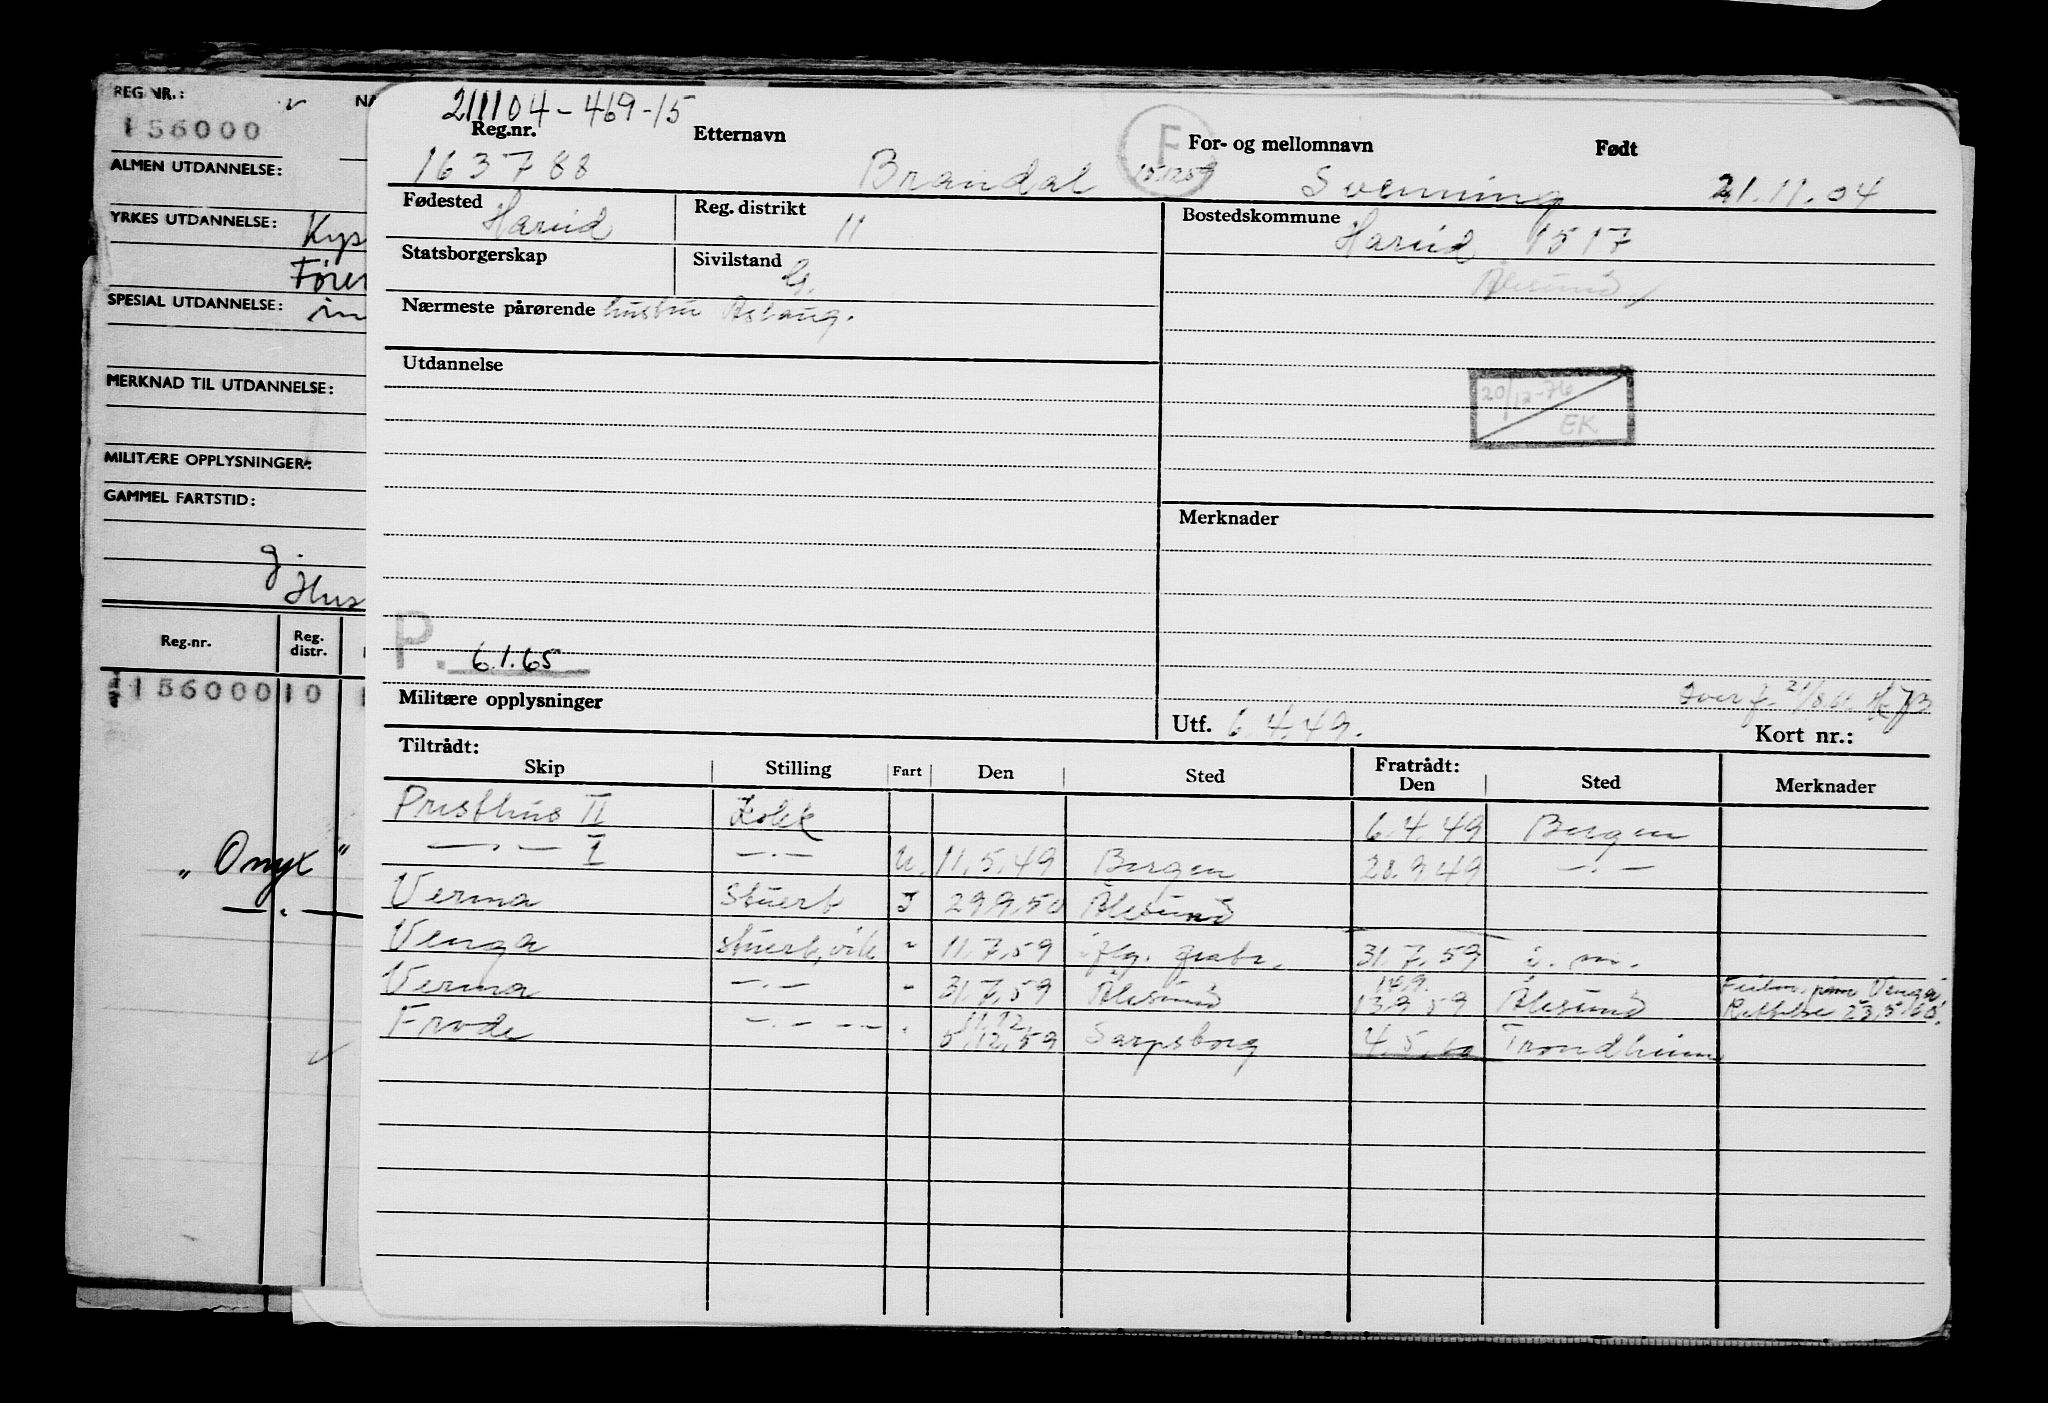 REG NR.:
156000
ALMEN UTDANNELSE:
YRKES UTDANNELSE: Kys
Fører
SPESIAL UTDANNELSE:
MERKNAD TIL UTDANNELSE:
MILITÆRE OPPLYSNINGER:
GAMMEL FARTSTID:
g.
Hus
Reg.nr. Reg. distr.
156000 10
"Onyx"
— . —
211104-469-15
Reg.nr. Etternavn F For- og mellomnavn Født
163788 Brandal 15.12.59 Svenning 21.11.04
Fødested Hareid Reg. distrikt 11 Bostedskommune Hareid 1517
Statsborgerskap Sivilstand G. Ålesund
Nærmeste pårørende hustru Aslaug.
Utdannelse
20/12-76
EK
Merknader
P. 6.1.65
Militære opplysninger
Overf. 21/8.61
Utf. 6.4.49. Kort nr.:
Tiltrådt: Fratrådt:
Skip Stilling Fart Den Sted Den Sted Merknader
Prosthus II Kokk 6.4.49 Bergen
— . — I — . — U. 11.5.49 Bergen 28.9.49 — . —
Verma Stuert I 29.9.50 Ålesund
Venga Stuert, vik - 11.7.59 31.7.59
Verma — . — - 31.7.59 Ålesund 14.9. 13.9.59 Ålesund Venga. Rettelse 23.5.60.
Frode — . — 11.12 5.12.59 Sarpsborg 4.5.60 Trondheim